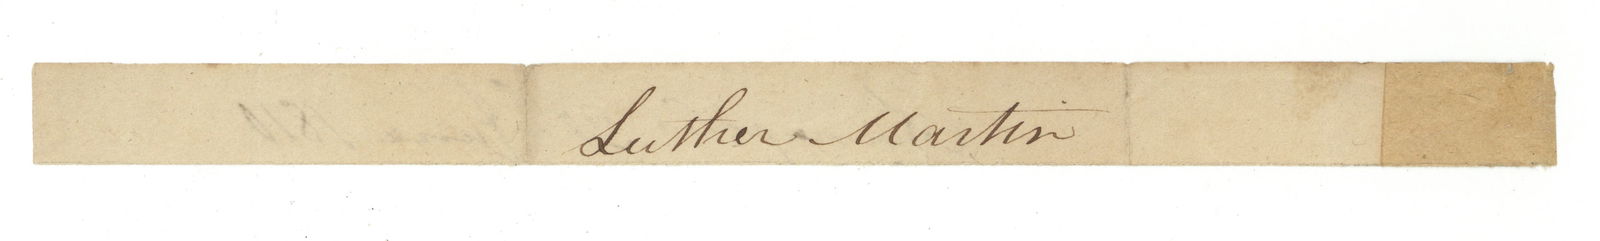 Luther Martin